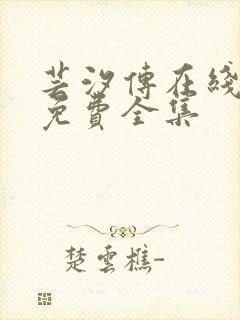 芸汐傳在綫
免費全集
楚雲樵-